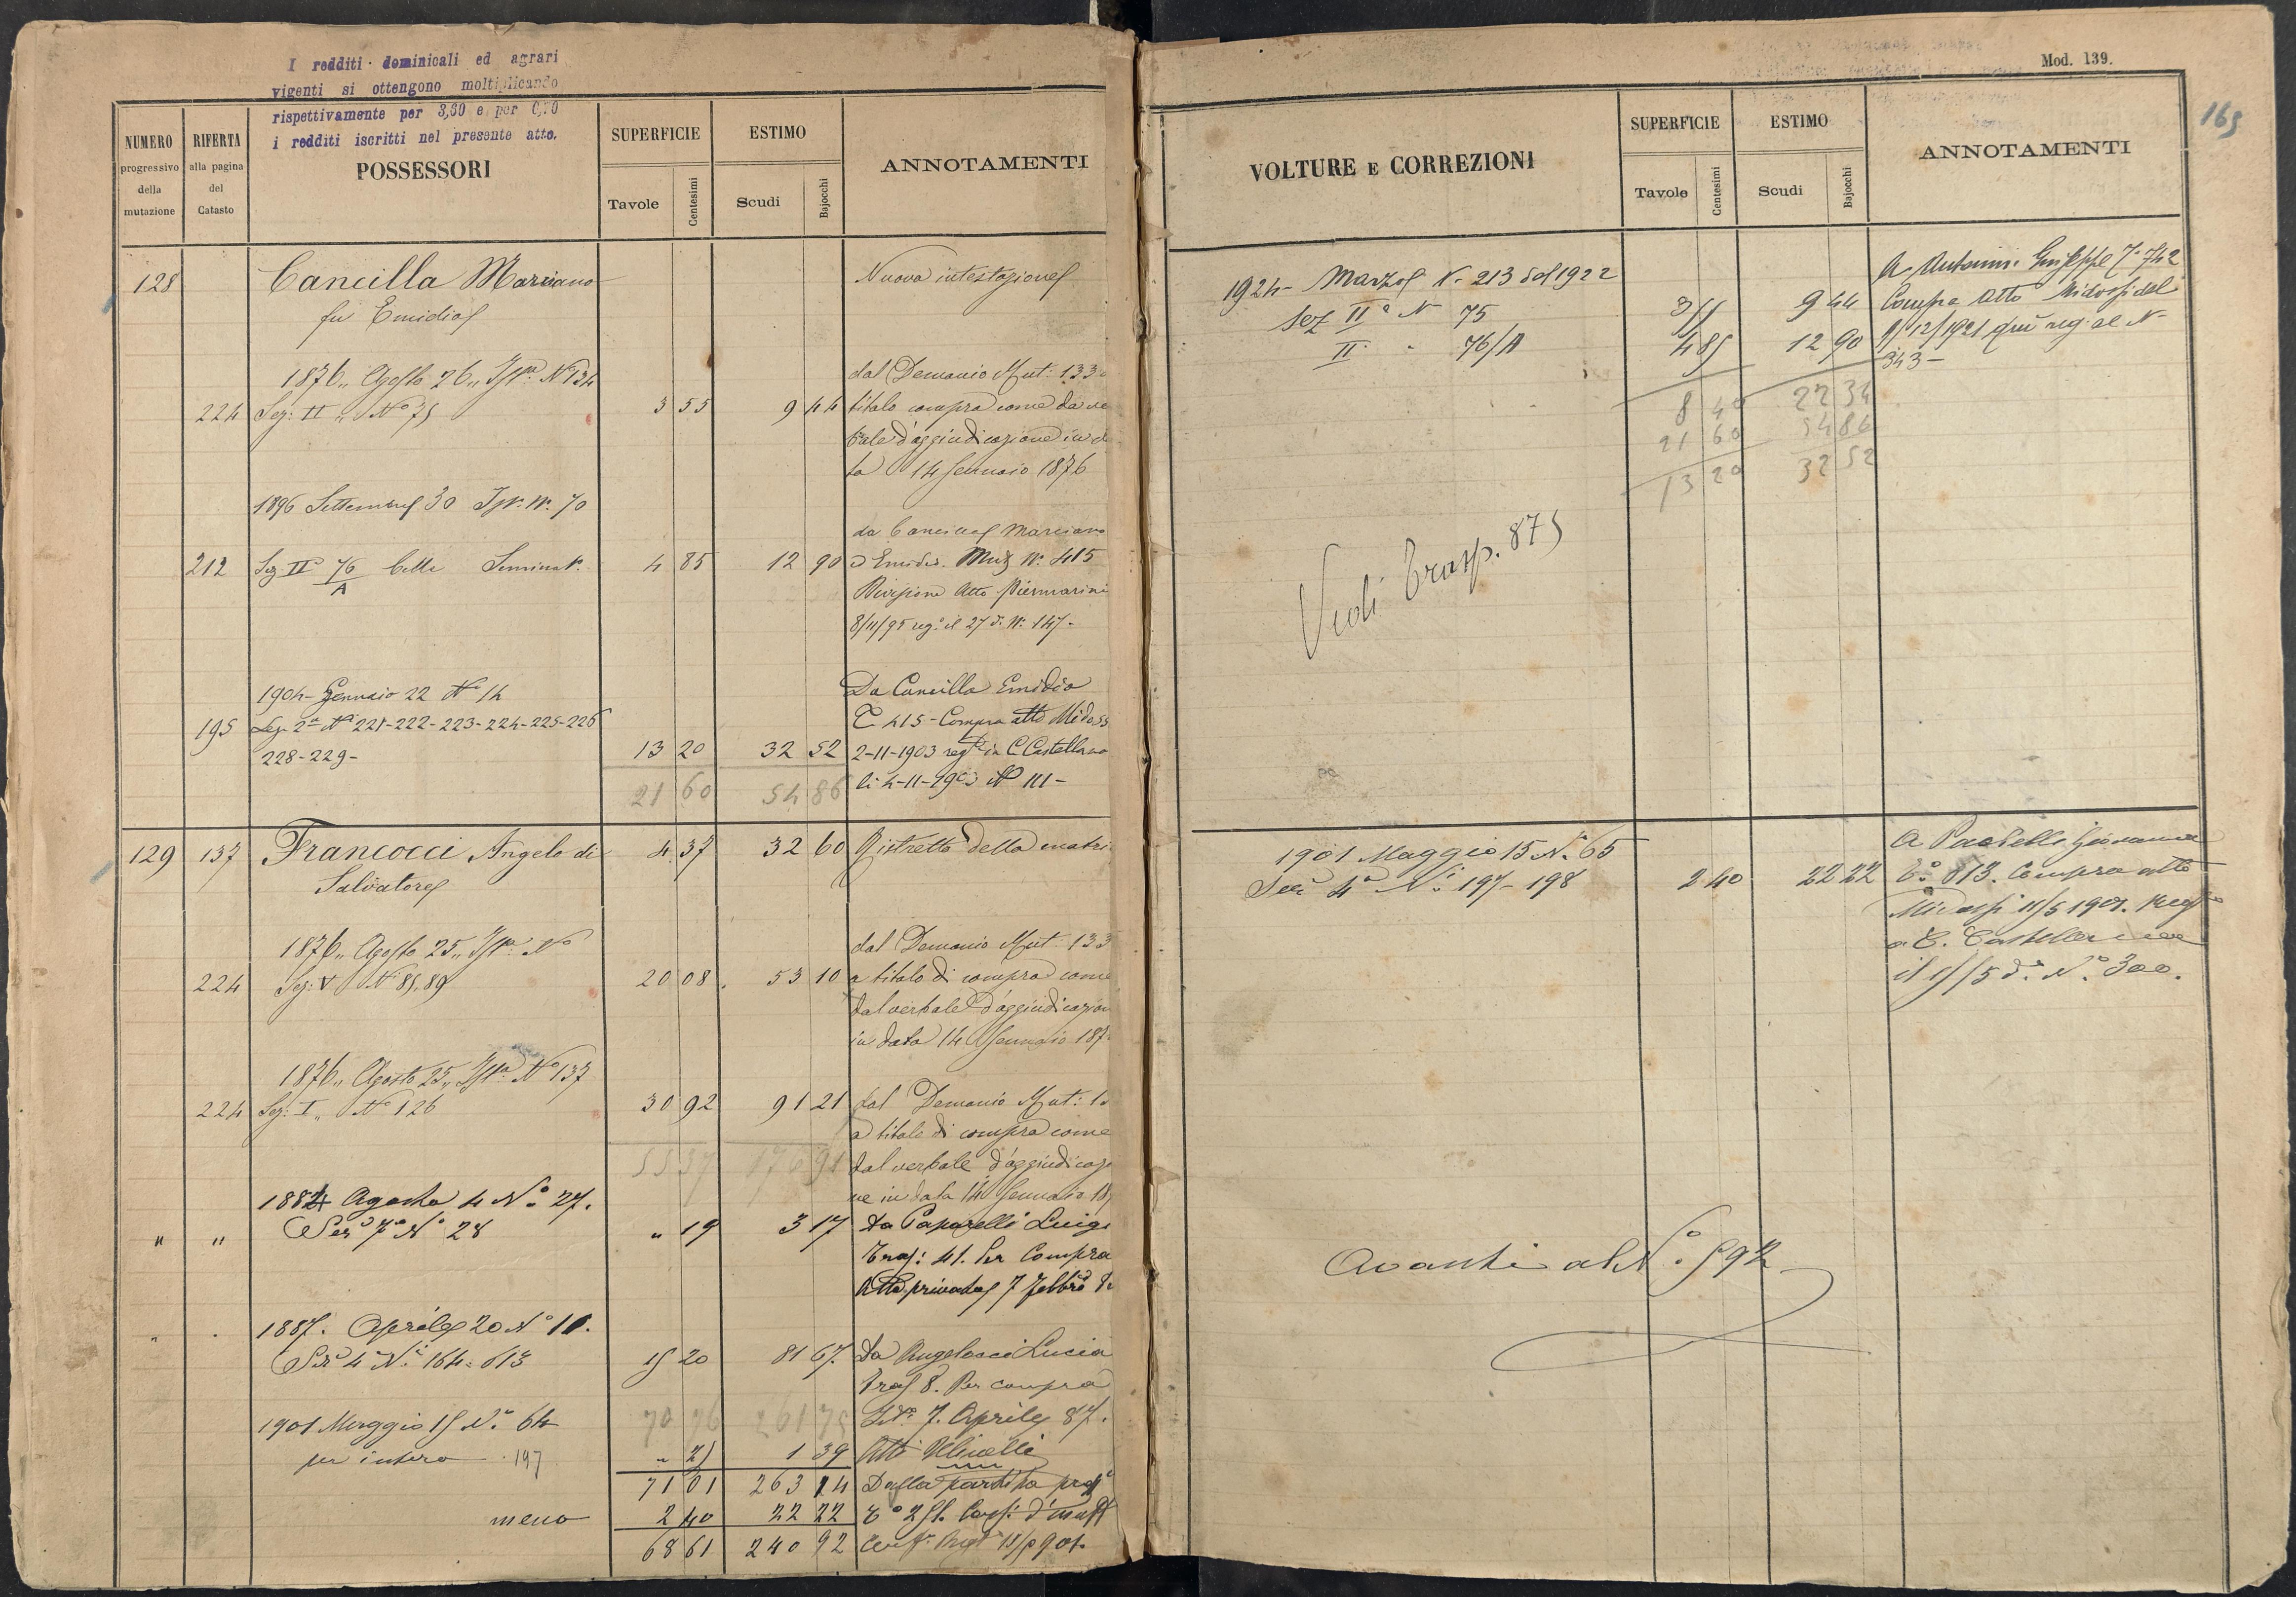 I redditi dominicali ed agrari
vigenti si ottengono moltiplicando
rispettivamente per 3,60 e per
i redditi iscritti nel presente atto.
NUMERO
progressivo
della
mutazione
RIFERTA
alla pagina
del
Catasto
POSSESSORI
SUPERFICIE
Tavole
Centesimi
ESTIMO
Scudi
Bajocchi
ANNOTAMENTI
128 Cancilla Marziano Nuova intestazione
fu Emidio
1876,, Agosto 26,, N° 134 dal Demanio Mut: 133
224 Sez: II ,, N° 75 3 55 9 44 titolo compra come da
d'aggiudicazione in
ta 14 Gennaio 1876
1896 Settembre 30 N. 70
da Marziano
212 Sez II 76 Seminat. 4 85 12 90 Emidio. N. 415
A Divisione Atto Piermarini
8/11/95 reg. il 27 d. N. 147-
1904- Gennaio 22 N° 14 Da Cancilla Emidio
195 Sez. 2a N 221-222-223-224-225-226 T 415- Compra atto
228-229- 13 20 32 52 2-11-1903 in C. Castellana
21 60 54 86 li 4-11-1903 N° 111-
129 137 Francocci Angelo di 4 37 32 60 Ristretto della matri
Salvatore
1876,, Agosto 25,, N° dal Demanio Mut: 133
224 Sez: V N 85, 89 20 08 53 10 a titolo di compra come
dal verbale d'aggiudicazion
in data 14 Gennaio 187
1876,, Agosto 25,, N° 137
224 Sez: I ,, N° 126 30 92 91 21 dal Demanio Mut: 13
a titolo di compra come
55 37 176 91 dal verbale d'aggiudicazi
ne in data 14 Gennaio 18
1884 Agosto 4 N° 27.
" " Sez 7a N° 28 " 19 3 17 da Paparelli Luigi
41. Per Compra
Atto privato 7 Febbr
1887. Aprile 20 N° 10.
Sez 4 N. 164 = 613 15 20 81 67. da Angelocci Lucia
8. Per compra
1901 Maggio 15 N. 64 70 76 261 75 7. Aprile 87.
per intero 197 " 25 1 39 Atti
71 01 263 14 Dalla partita
meno 2 40 22 22
68 61 240 92
Mod. 139.
165
VOLTURE E CORREZIONI
SUPERFICIE
Tavole
Centesimi
ESTIMO
Scudi
Bajocchi
ANNOTAMENTI
A Antonini Giuseppe 742
1924- Marzo N. 213 del 1922
Sez II a N 75 355 9 44 Compra Atto del
II " 76/A 485 12 90 12/1921 reg. al N-
343-
8 40 22 34
21 60 54 86
13 20 32 52
Vedi Trasp. 875
1901 Maggio 15 N. 65 A Giovanni
Sez 4a N. 197-198 2 40 22 22 813. Compra atto
11/5 1901.
a C. Castellana
il 15/5 d. N. 300.
Avanti al N°. 592